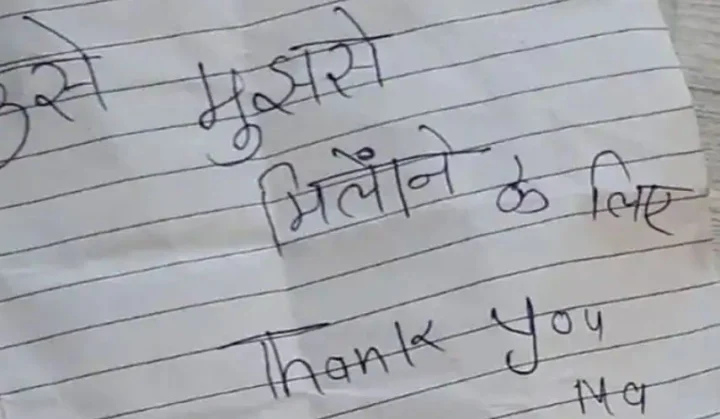 उसे मुझसे
मिलाँने के लिए
Thank you
Ma